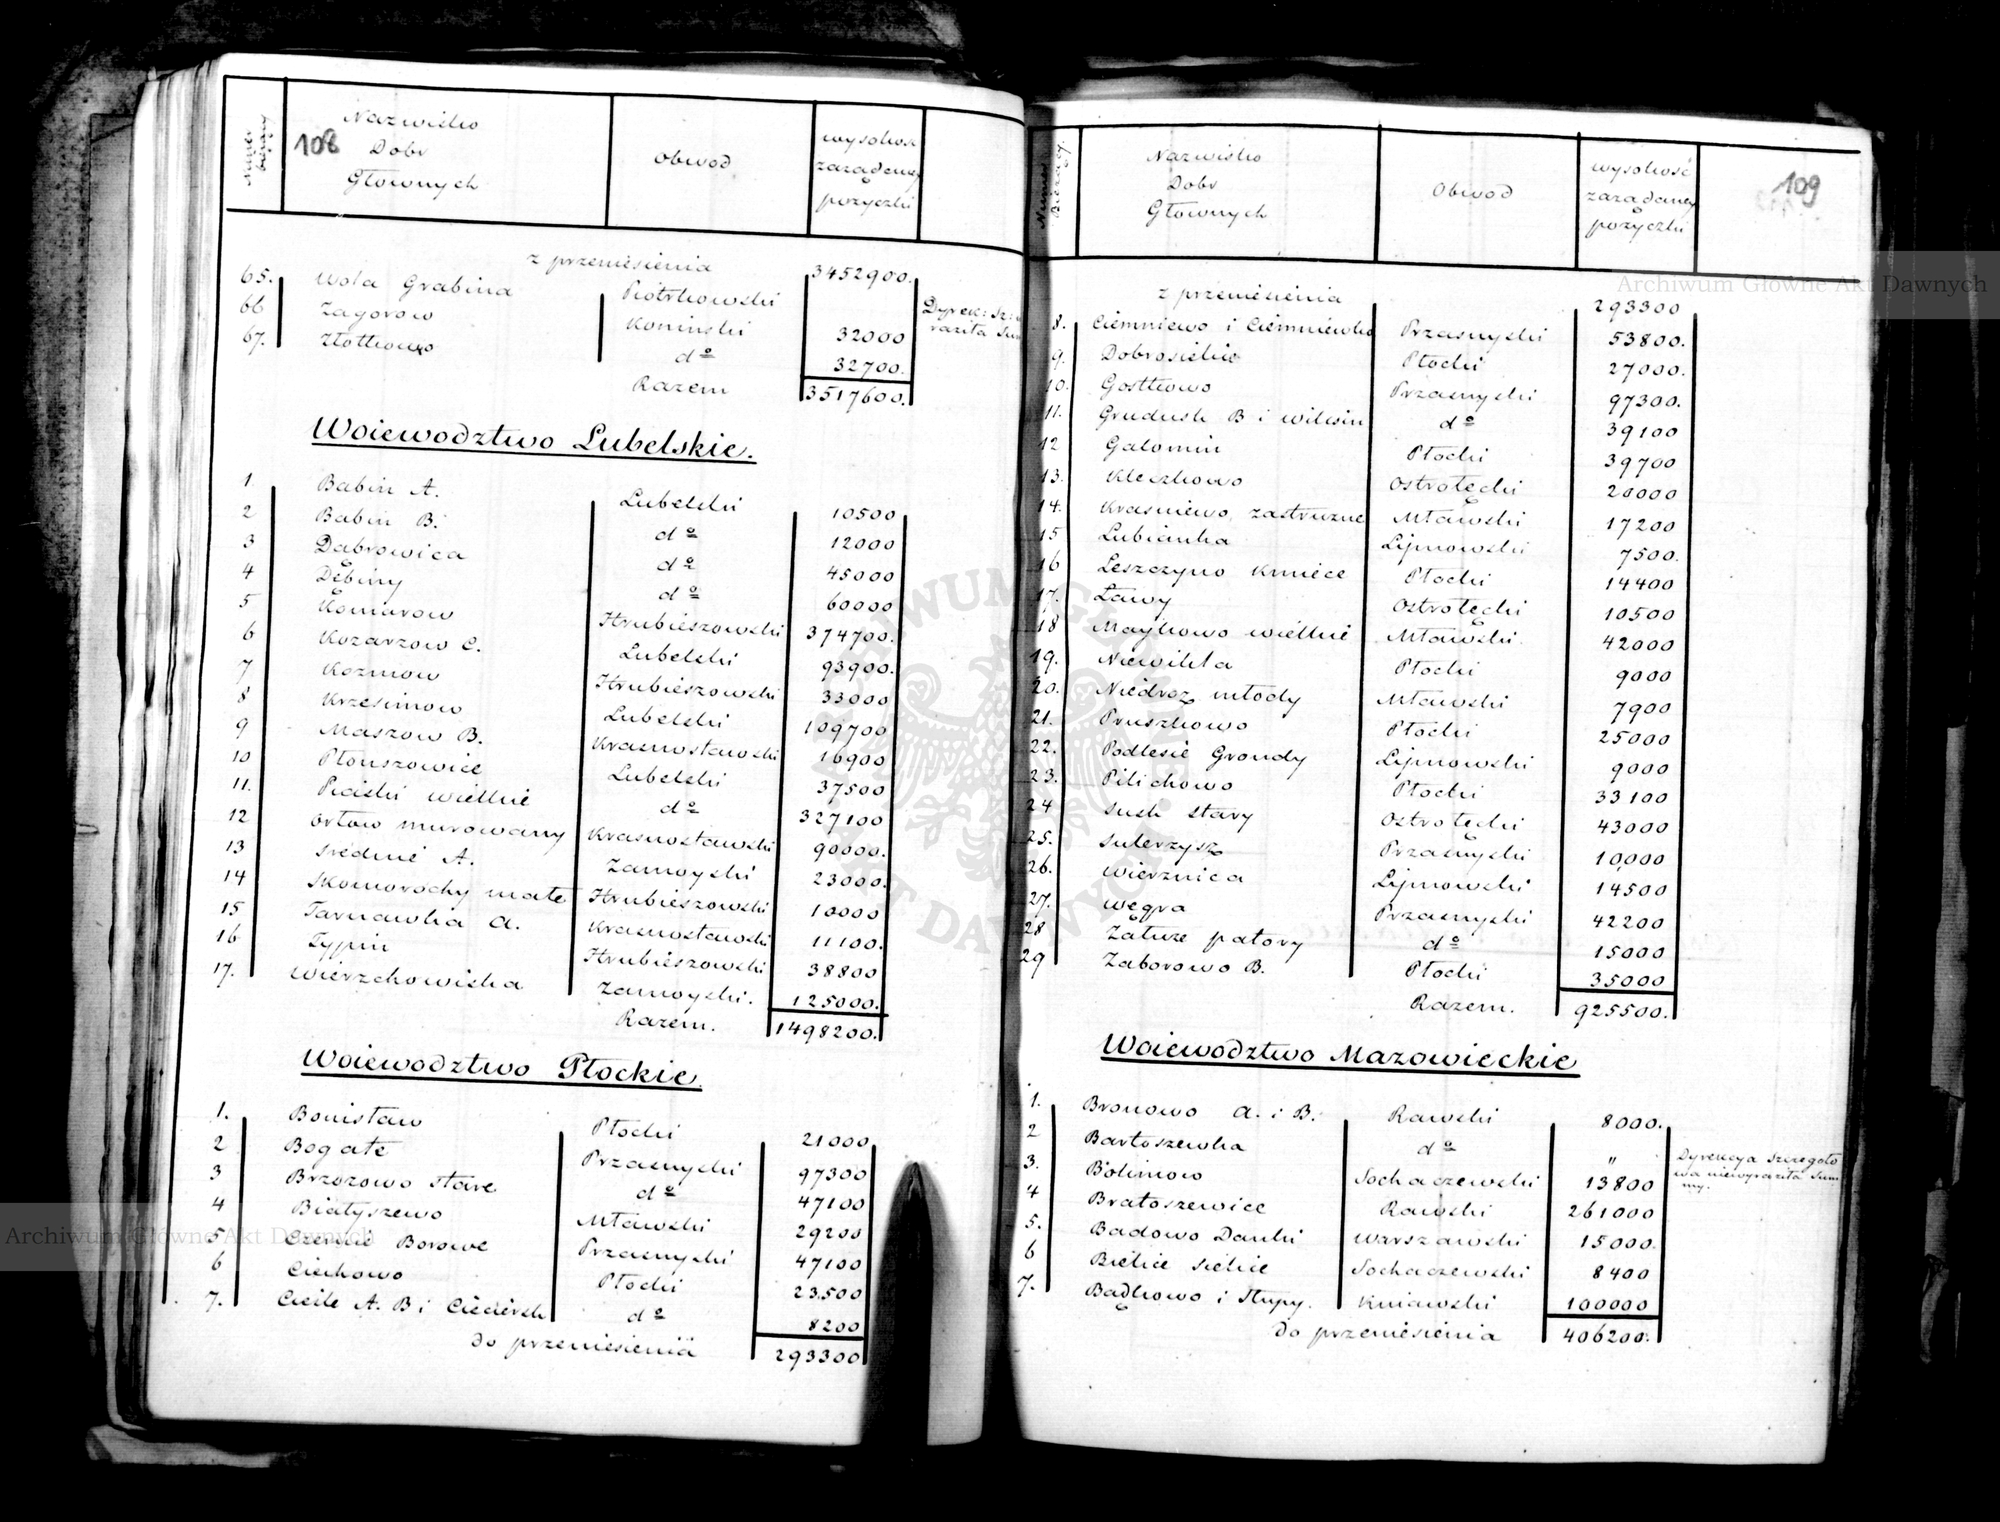 Numer bieżący
108
Nazwisko
Dobr
Głownych
Obwod
wysokość
zaządaney
pożyczki
z przeniesienia 3452900.
65. Wola Grabina Piotrkowski Dyrek: Sz:
66 Zagorow Koninski 32000
67. Złotkowo do 32700.
Razem 3517600.
Woiewodztwo Lubelskie.
1. Babin A. Lubelski 10500
2 Babin B. do 12000
3 Dąbrowica do 45000
4 Dębiny do 60000
5 Komarow Hrubieszowski 374700.
6 Kozarzow C. Lubelski 93900.
7 Kozmow Hrubieszowski 33000
8 Krzesimow Lubelski 109700
9 Maszow B. Krasnostawski 16900
10 Płouszowice Lubelski 37500
11. Piaski wielkie do 327100
12 Orłow murowany Krasnostawski 90000.
13 Srednie A. Zamoyski 23000.
14 Skomorochy małe Hrubieszowski 10000
15 Tarnawka a. Krasnostawski 11100.
16 Typin Hrubieszowski 38800
17. Wierzchowiska Zamoyski. 125000.
Razem. 1498200.
Woiewodztwo Płockie.
1. Bonisław Płocki 21000
2 Bogate Przasnyski 97300
3 Brzozowo stare do 47100
4 Białyszewo Mławski 29200
5 Czernie Borowe Przasnyski 47100
6 Ciekowo Płocki 23500
7. Ciećle A. B i Cieciersk do 8200
do przeniesienia 293300
Numer Bieżący.
Nazwisko
Dobr
Głownych
Obwod
wysokość
zaządaney
pożyczki
109
z przeniesienia 293300
8. Ciemniewo i Ciemniewko Przasnyski 53800.
9. Dobrosielice Płocki 27000.
10. Gostkowo Przasnyski 97300.
11. Grudusk B i wilesin do 39100
12 Galomin Płocki 39700
13. Kleczkowo Ostrołęcki 20000
14. Krasniewo zastruzne Mławski 17200
15 Lubianka Lipnowski 7500.
16 Leszczyno Kmiece Płocki 14400
17. Ławy Ostrołęcki 10500
18 Maykowo wielkie Mławski. 42000
19. Niewikla Płocki 9000
20. Niedroz młody Mławski 7900
21. Pruszkowo Płocki 25000
22. Podlesie Grondy Lipnowski 9000
23. Pilichowo Płocki 33100
24 Susk stary Ostrołęcki 43000
25. Sulerzysz Przasnyski 10000
26. Wierznica Lipnowski 14500
27. Węgra Przasnyski 42200
28 Załuze patory do 15000
29 Zaborowo B. Płocki 35000
Razem. 925500.
Woiewodztwo Mazowieckie
1. Bronowo a. i B. Rawski 8000.
2 Bartoszewka do " Dyrekcya szczegoło
3. Bolimow Sochaczewski 13800 wa niewyraziła Sum
my.
4 Bratoszewice Rawski 261000
5. Badowo Danki Warszawski 15000.
6 Bielice sielice Sochaczewski 8400
7. Bądkowo i Słupy. Kuiawski 100000
do przeniesienia 406200.
Archiwum Główne Akt Dawnych
Archiwum Główne Akt Dawnych